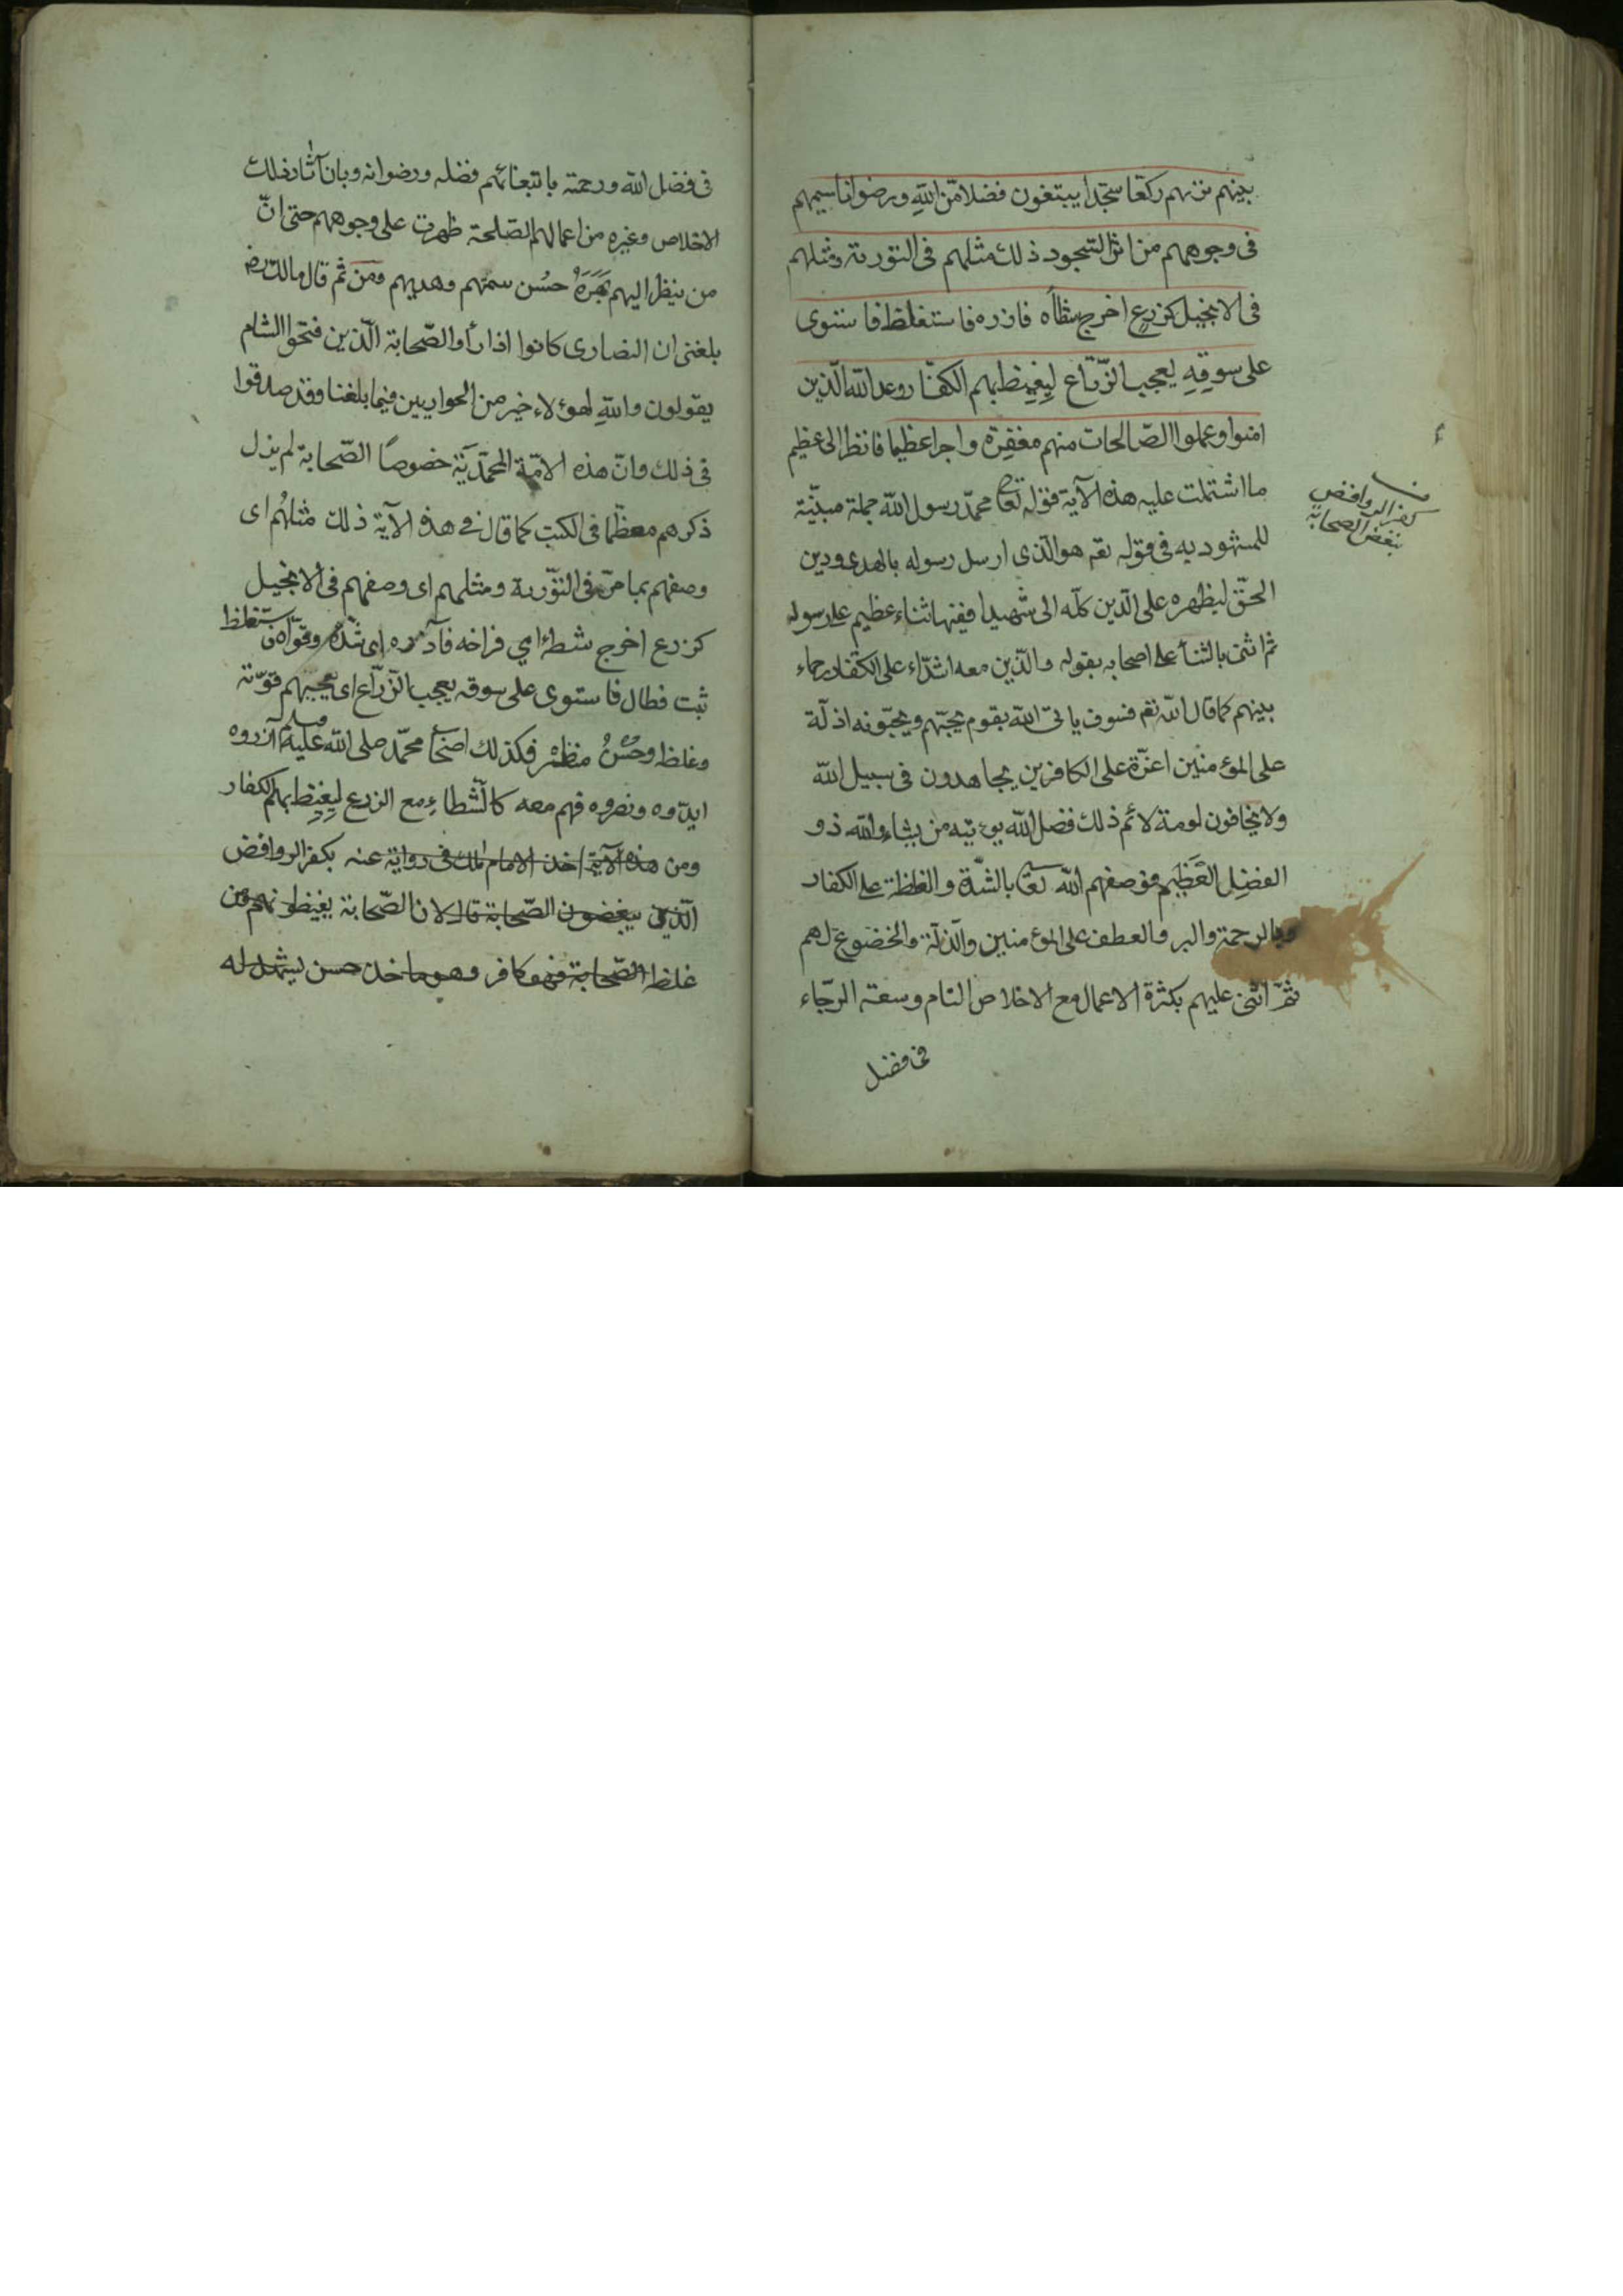 بينهم تريهم ركعا سجدا يبتغون فضلا من الله ورضوانا سيميهم
فى وجوههم من اثر السجود ذلك مثلهم فى التورية ومثلهم
فى الانجيل كزرع اخرج شطأه فازره فاستغلظ فاستوى
على سوقهِ يعجب الزّرّاع لِيغيظ بهم الكفّار وعد الله الّذين
امنوا وعملوا الصّالحات منهم مغفرة واجرا عظيما فانظر الى عظيم
ما اشتملت عليه هذه الآية فقوله تعا محمّد رسول الله جملة مبيّنة
للمشهود به فى قوله تعم هو الّذى ارسل رسوله بالهدى ودين
الحقّ ليظهره على الدّين كلّه الى شهيدا ففيها ثناء عظيم على رسوله
ثم اثنى بالثنأ على اصحابه بقوله والّذين معه اشدّاء على الكفّار رحماء
بينهم كما قال الله تعم فسوف ياتى الله بقوم يحبّهم ويحبّونه اذلّة
على المؤمنين اعزّة على الكافرين يجاهدون فى سبيل الله
ولا يخافون لومة لائم ذلك فضل الله يوءتيه من يشاء والله ذو
الفضلِ العَظِيم فوصفهم الله تعا بالشدّة والغلظة على الكفار
وبالرحمة والبر والعطف على المؤمنين والذلّة والخضوع لهم
ثمّ اثنى عليهم بكثرة الاعمال مع الاخلاص التام وسعة الرّجاء
فى فضل
كفر الروافض
ببغض الصحابة
فى فضل الله ورحمته بابتغائهم فضله ورضوانه وبان آثار ذلك
الاخلاص وغيره من اعمالهم الصّلحة ظهرت على وجوههم حتى انّ
من ينظر اليهم بَهَرَهُ حُسْن سمتهم وهديهم ومن ثم قال مالك رض
بلغنى ان النصارى كانوا اذا رأو الصّحابة الّذين فتحوا الشام
يقولون واللهِ لهؤلاء خير من الحواريين فيما بلغنا وقد صدقوا
فى ذلك وانّ هذه الامّة المحمّديّة خصوصًا الصّحابة لم يزل
ذكرهم معظّما فى الكتب كما قال فى هذه الآية ذلك مثلهُم اى
وصفهم بما مرّ فى التّورية ومثلهم اى وصفهم فى الانجيل
كزرع اخرج شطأ اي فراخه فآزره اى شدّه وقوّاه فاستغلظ
ثبت فطال فاستوى على سوقه يعجب الزّرّاع اى يعجبهم قوّته
وغلظه وحُسْنُ منظره فكذلك اصحأ محمّد صلى الله عليه وسلم آزروه
ايدّوه ونصروه فهم معه كالشّطاء مع الزرع لِيغيظ بهم الكفار
ومن هذه الآية اخذ الامام مالك فى رواية عنه بكفر الروافض
الّذين يبغضون الصّحابة قال لان الصّحابة يغيظونهم ومن
غلظ الصّحابة فهو كافر وهو ماخذ حسن يشهد له